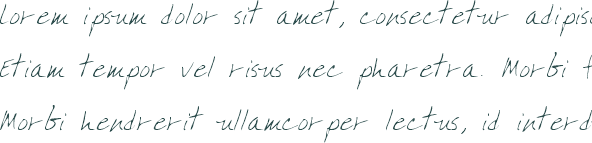 Lorem ipsum dolor sit amet, consectetur adipisc
Etiam tempor vel risus nec pharetra. Morbi
Morbi hendrerit ullamcorper lectus, id interd